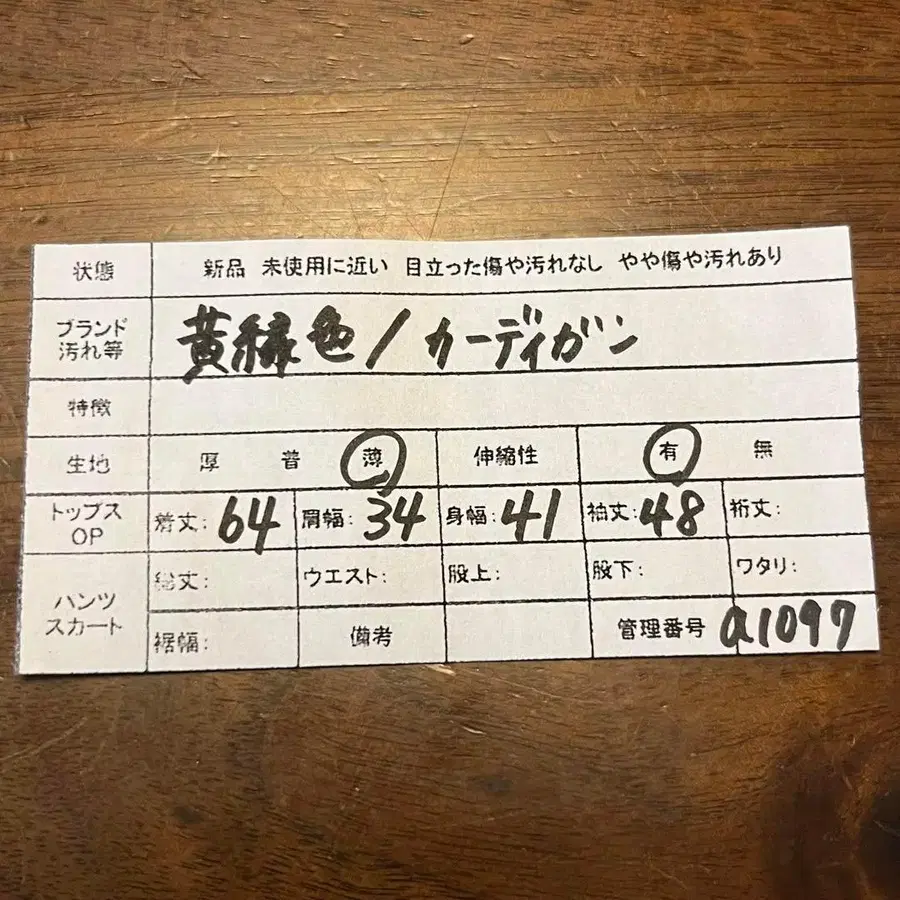 状態 新品 未使用に近い 目立った傷や汚れなし やや傷や汚れあり
ブランド
汚れ等
黄緑色/カーディガン
特徴
生地 厚 普 薄 伸縮性 有 無
トップス
OP
着丈:64 肩幅:34 身幅:41 袖丈:48 裄丈:
パンツ
スカート
総丈: ウエスト: 股上: 股下: ワタリ:
裾幅: 備考 管理番号 a1097